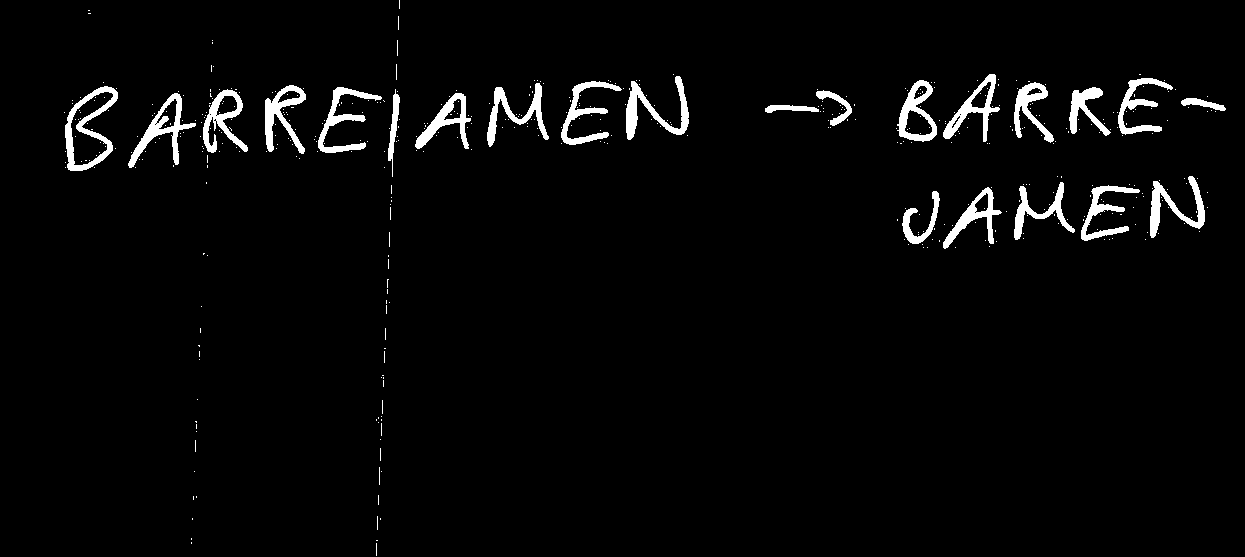 BARREIAMEN → BARRE-
JAMEN